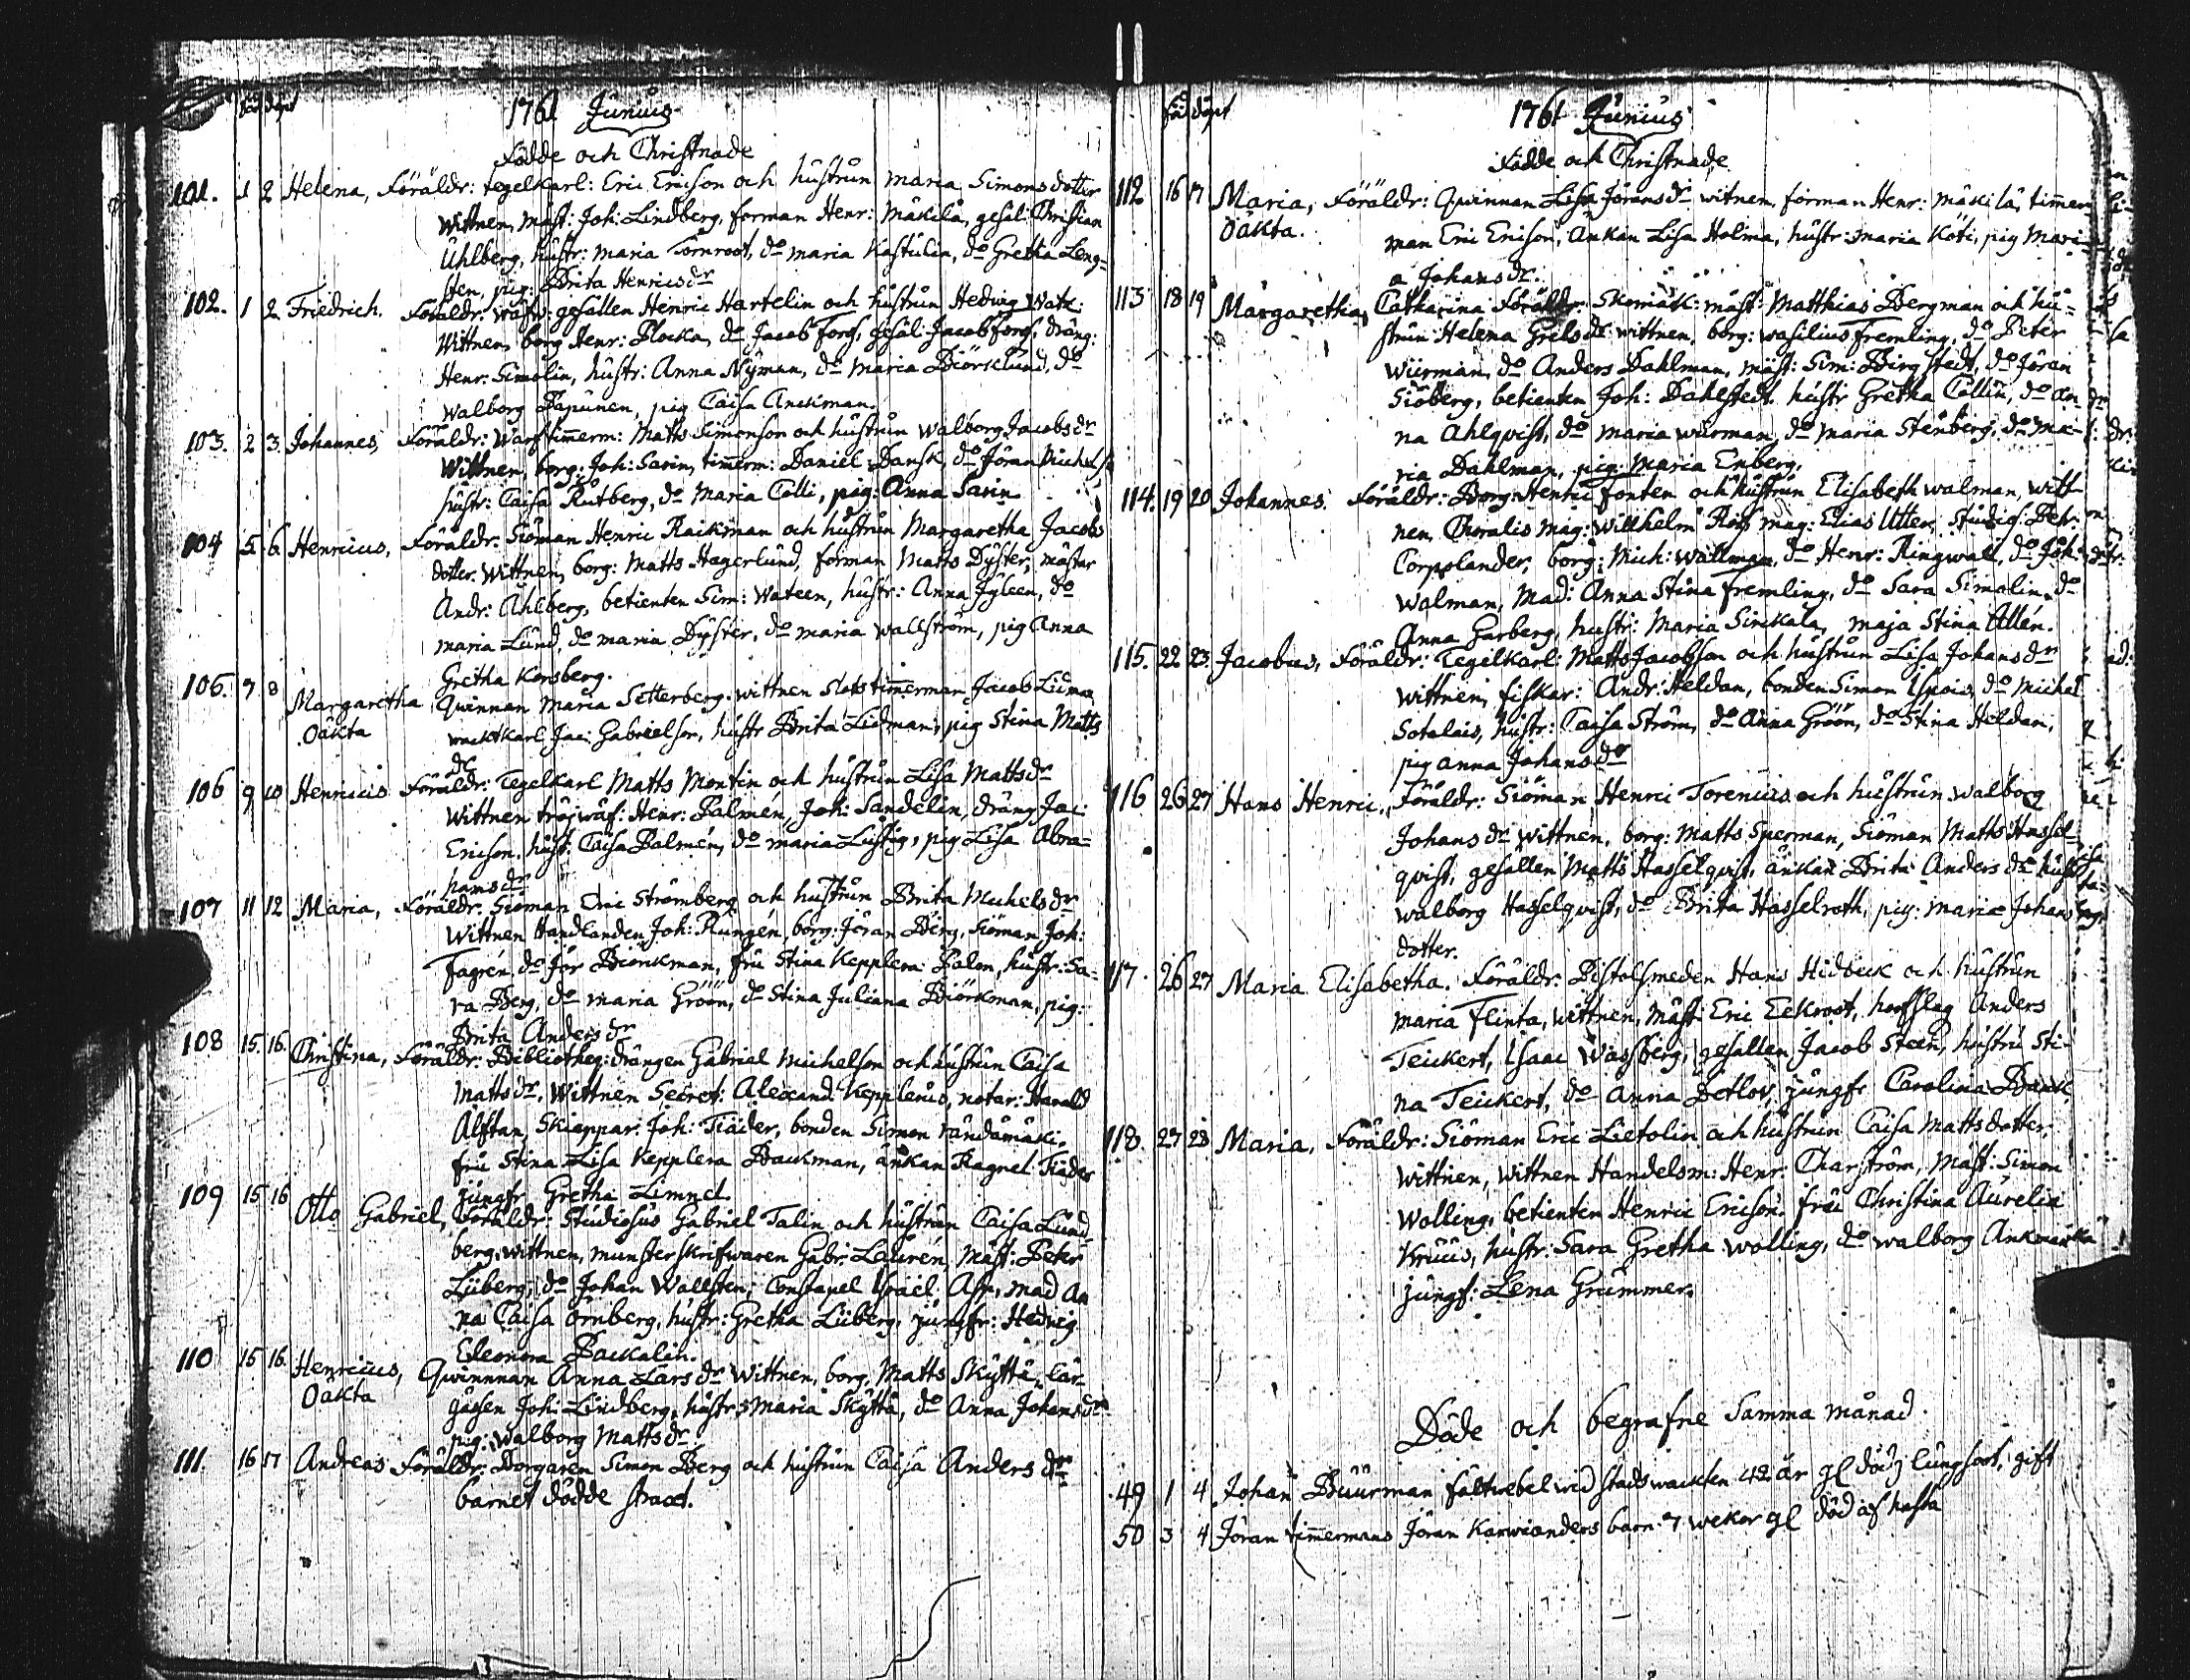 föd döpt
1761 Junius
Födde och Christnade
101. 1 2 Helena, Föräldr: tegelkarl: Eric Ericson och hustrun Maria Simonsdotter
Wittnen, mäst: Joh: Lindberg, forman Henr: Mäkilä, gesäl: Christian
Uhlberg, hustr: Maria Törnroot, do Maria Kastulia, do Gretha Leng-
sten, pig: Brita Henricsdr
102. 1 2 Friedrich. Föräldr: wäfw: gesällen Henric Hartelin och hustrun Hedvig Watz
Wittnen, borg Henr: Blocka, do Jacob Forss, gesäl Jacob Forss, dräng:
Henr: Simolin, hustr: Anna Nyman, do Maria Biörklund, do
Walborg Papunen, pig Caisa Anckman.
103. 2 3. Johannes, Föräldr: Warftimerm: Matts Simonson och hustrun Walborg Jacobsdr
Wittnen, borg: Joh: Sarin, timerm: Daniel Dansk, do Jöran Michels
hustr: Caisa Rutberg, do Maria Colli, pig: Anna Sarin
104 5 6. Henricus, Föräldr: Siöman Henric Raickman och hustrun Margaretha Jacobs
dotter. Wittnen, borg: Matts Hagerlund, forman Matts Dyster, mästar
Andr: Ahlberg, betienten Sim: Wateen, hustr: Anna Igleen, do
Maria Lund, do Maria Dyster, do Maria Wallström, pig Anna
Gretha Korsberg.
106. 7 8 Margaretha Qwinnan Maria Setterberg. wittnen Slotstimerman Jacob Lidman
Oäkta wacktkarl Jac: Gabrielson, hustr Brita Lidman, pig Stina Matts
dr
106 9 10 Henricus Föräldr: Tegelkarl Matts Montin och hustrun Lisa Mattsdr
Wittnen tröjwäf: Henr: Palmén, Joh: Sandelin, dräng Jac:
Ericson, hust: Caisa Palmén, do Maria Lustig, pig Lisa Abra-
hamsdr
107 11 12 Maria, Föräldr: Siöman Eric Strömberg och hustrun Brita Michelsdr
Wittnen Handlanden Joh: Rungén, borg: Jöran Berg, Siöman Joh:
Fagrén, do Jör Biörckman, fru Stina Kepplera Palen, hustr: Sa-
ra Berg, do Maria Gröön, do Stina Juliana Biörkman, pig:
Brita Andersdr
108 15. 16. Christina, Föräldr: Bibliotheq: drängen Gabriel Michelson och hustrun Caisa
Mattsdr. Wittnen Secret: Alexand: Kepplerus, notar: Harald
Alftan, Skieppar: Joh: Tiäder, bonden Simon rändämäki,
fru Stina Lisa Kepplera Backman, änkan Ragnel Tiäder
jungfr Gretha Limnel.
109 15 16 Otto Gabriel, Föräldr: Studiosus Gabriel Talin och hustrun Caisa Lund
berg, wittnen, munsterskrifwaren Gabr: Laurén, Mäst: Petter
Liiberg, do Johan Wallsten, Constapel Israel Asp, mad An
na Caisa Örnberg, hustr: Gretha Liiberg, jungfr: Hedvig
Eleonora Backalin.
110 15 16. Henricus, Qwinnan Anna Larsdr Wittnen, borg, Matts Skyttä, lär-
Oäkta gåssen Joh: Lindberg, hustr: Maria Skyttä, do Anna Johansdr
pig: Walborg Mattsdr
111. 16 17 Andreas Föräldr: Borgaren Simon Berg och hustrun Caisa Andersdr
barnet dödde straxt.
föd döpt
1761 Junius
Födde och Christnade
112 16 17 Maria, Föräldr: Qwinnan Lisa Jöransdr. witnen, forman Henr: Mäkilä, timer
Oäkta. man Eric Ericson, Änkan Lisa Holma, hustr: Maria Köti, pig Mari-
a Johansdr.
113 18 19 Margaretha, Catharina Föräldr: Skomak: mäst: Matthias Bergman och hu-
strun Helena Grelsdr. wittnen, borg: Wasilius Fremling, do Peter
Wiirman, do Anders Dahlman, mäst: Sim: Bergstedt, do Jöran
Siöberg, betienten Joh: Dahlstedt. hustr Gretha Collin, do An-
na Ahlqvist, do Maria Wiirman, do Maria Stenberg, do Ma-
ria Dahlman, pig: Maria Enberg.
114. 19 20 Johannes. Föräldr: Borg: Henric Fonten och hustrun Elisabeth Walman, witt-
nen, Choralis mag: Willhelm Ross mag: Elias Utter, Studios: Petr:
Corpolander, borg: Mich: Wallman, do Henr: Ringwall, do Joh:
Walman, Mad: Anna Stina Fremling, do Sara Simolin, do
Anna Garberg, hustr: Maria Sirckala, maja Stina Allén.
115. 22 23. Jacobus, Föräldr: Tegelkarl: Matts Jacobsson och hustrun Lisa Johansdr
wittnen, fiskar: Andr: Heldan, bonden Simon Uspois, do Michel
Sotalais, hustr: Caisa Ström, do Anna Gröön, do Stina Heldan,
pig Anna Johansdr
116 26 27 Hans Henric, Föräldr: Siöman Henric Torenius och hustrun Walborg
Johansdr wittnen, borg: Matts Sperman, Siöman Matts Hassel-
qvist, gesällen Matts Hasselqvist, änkan Brita Andersdr hust
Walborg Hasselqvist, do Brita Hasselroth, pig: Maria Johans
dotter.
117. 26 27 Maria Elisabetha. Föräldr: Pistolsmeden Hans Hidbeck och hustrun
Maria Flinta, wittnen, Mäst: Eric Eekroot, hofslag Anders
Teickert, Isaac Wassberg, gesällen Jacob Steen, hustru Sti-
na Teickert, do Anna Detlov, jungfr Carolina Baack
118. 27 28 Maria, Föräldr: Siöman Eric Lietolin och hustrun Caisa Mattsdotter
Wittnen, wittnen Handelsm: Henr: Charström, Mäst: Simon
Wolling, betienten Henric Ericson, fru Christina Aurelia
Kruus, hustr: Sara Gretha Wolling, do Walborg Ankmarka
jungf: Lena Grummer.
Döde och begrafne Samma månad.
49 1 4 Johan Buurman fältwebel wid stadswackten 42 år gl död i lungsoot, gift
50 3 4 Jöran timermans Jöran Karwianders barn 7 wekor gl död af hosta